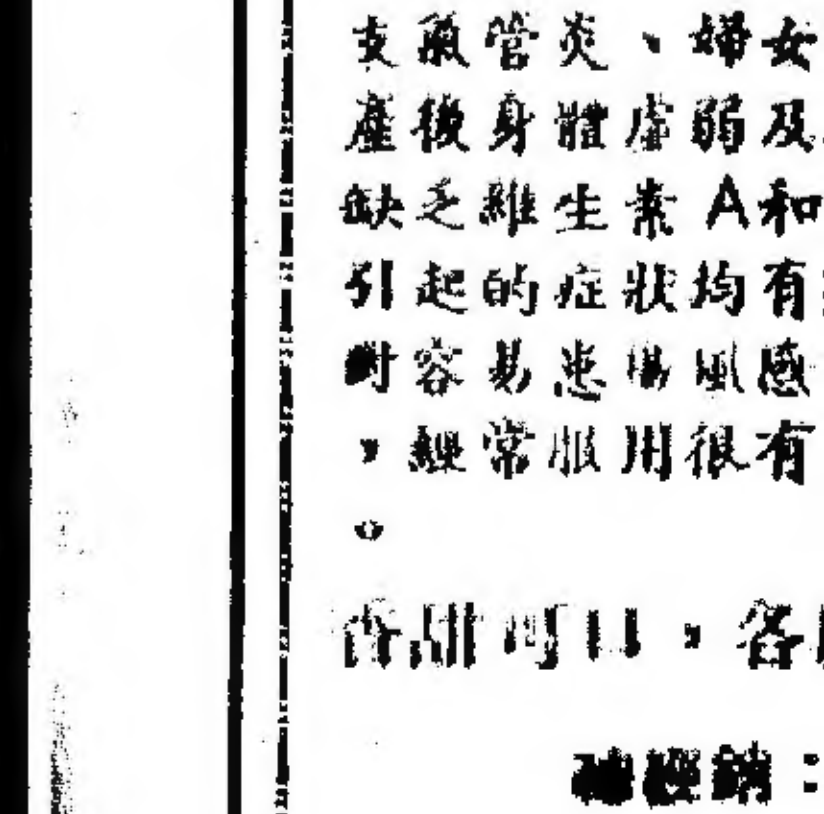 支氣管炎、婦女
產後身體虛弱及
缺乏維生素A和
引起的症狀均有
對容易患傷風感
，經常服用很有
。
香甜可口，各
總經銷：